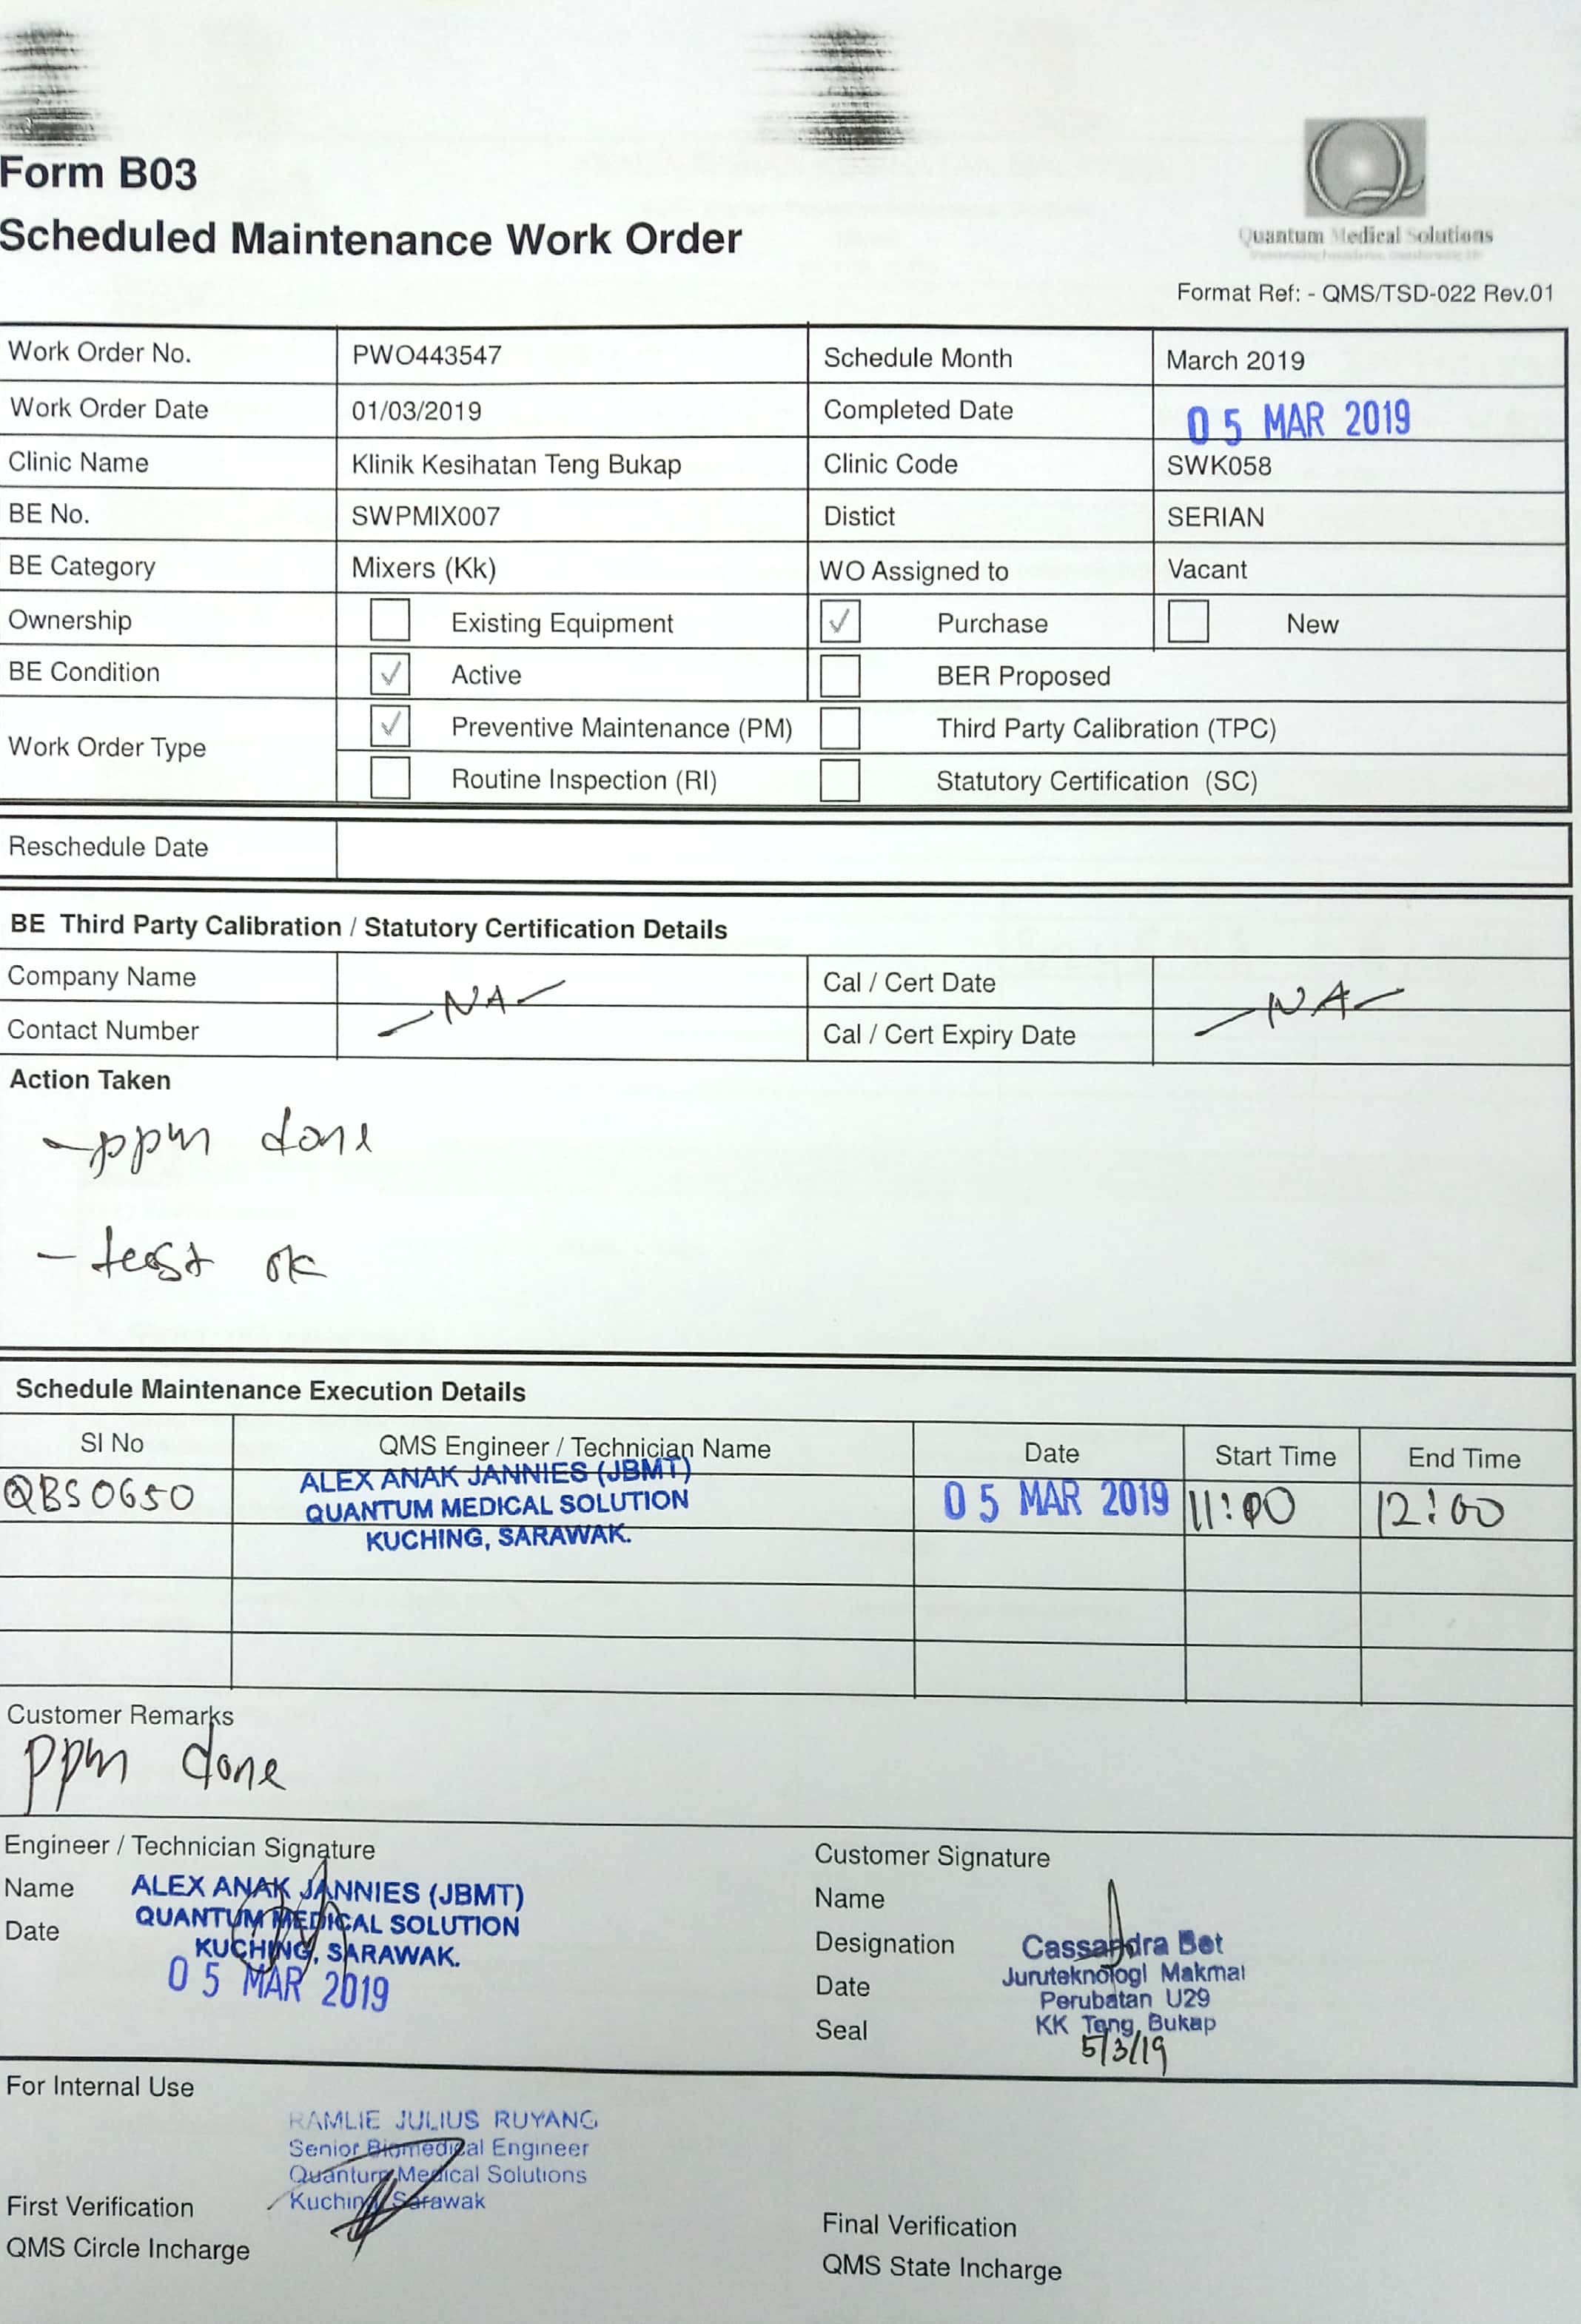 Form B03
Scheduled Maintenance Work Order
Quantum Medical Solutions
Format Ref: - QMS/TSD-022 Rev.01
Work Order No. PWO443547 Schedule Month March 2019
Work Order Date 01/03/2019 Completed Date 05 MAR 2019
Clinic Name Klinik Kesihatan Teng Bukap Clinic Code SWK058
BE No. SWPMIX007 Distict SERIAN
BE Category Mixers (Kk) WO Assigned to Vacant
Ownership Existing Equipment ✓ Purchase New
BE Condition ✓ Active BER Proposed
Work Order Type ✓ Preventive Maintenance (PM) Third Party Calibration (TPC)
Routine Inspection (RI) Statutory Certification (SC)
Reschedule Date
BE Third Party Calibration / Statutory Certification Details
Company Name -NA- Cal / Cert Date -NA-
Contact Number Cal / Cert Expiry Date
Action Taken
-ppm done
- teast ok
Schedule Maintenance Execution Details
SI No QMS Engineer / Technician Name Date Start Time End Time
QBS0650 ALEX ANAK JANNIES (JBMT) 05 MAR 2019 11:00 12:00
QUANTUM MEDICAL SOLUTION
KUCHING, SARAWAK.
Customer Remarks
ppm done
Engineer / Technician Signature
Name ALEX ANAK JANNIES (JBMT)
QUANTUM MEDICAL SOLUTION
Date KUCHING, SARAWAK.
05 MAR 2019
Customer Signature
Name
Designation Cassandra Bet
Juruteknologi Makmal
Date Perubatan U29
Seal KK Teng Bukap
5/3/19
For Internal Use
RAMLIE JULIUS RUYANG
Senior Biomedical Engineer
Quantum Medical Solutions
Kuching Sarawak
First Verification
QMS Circle Incharge
Final Verification
QMS State Incharge